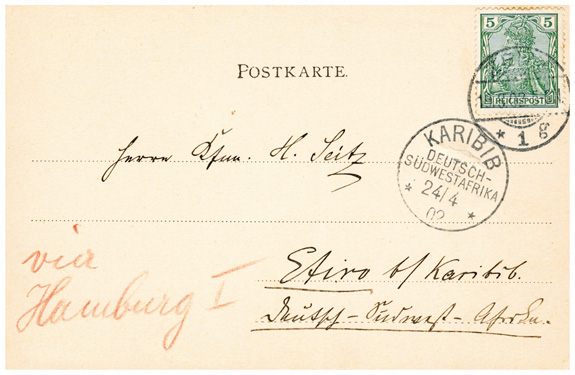 5 5
REICHSPOST
POSTKARTE.
* 1 g
KARIBIB
DEUTSCH-
SÜDWESTAFRIKA
* 24/4 *
02
Herrn Kfm. H. Seitz
via
Hamburg I
Etiro b/ Karibib.
Deutsch-Südwest-Afrika.